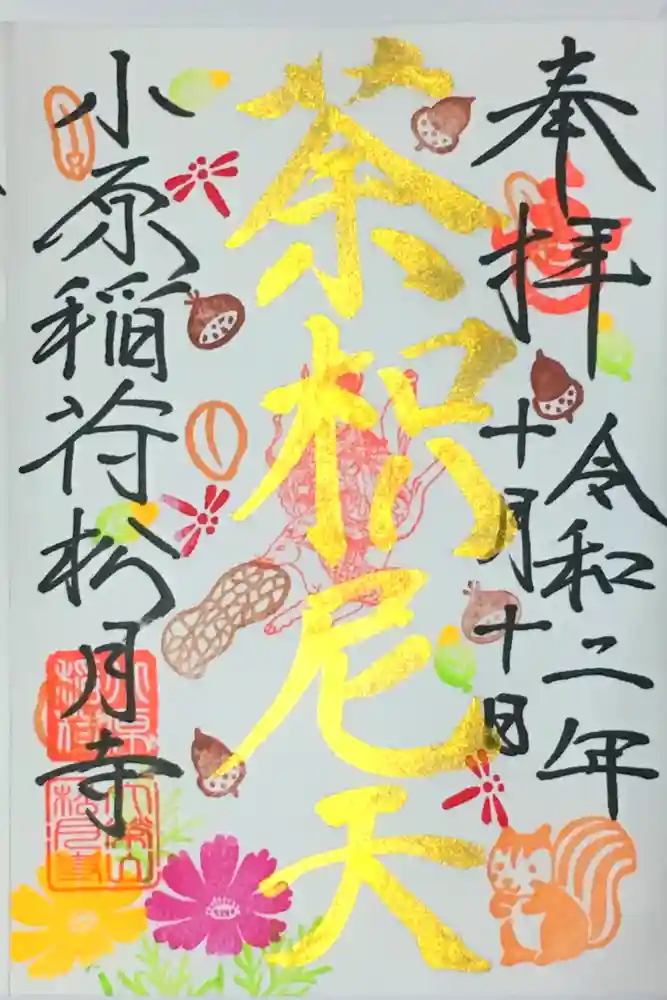 奉拝
令和二年
十月十日
荼枳尼天
小原稲荷松月寺